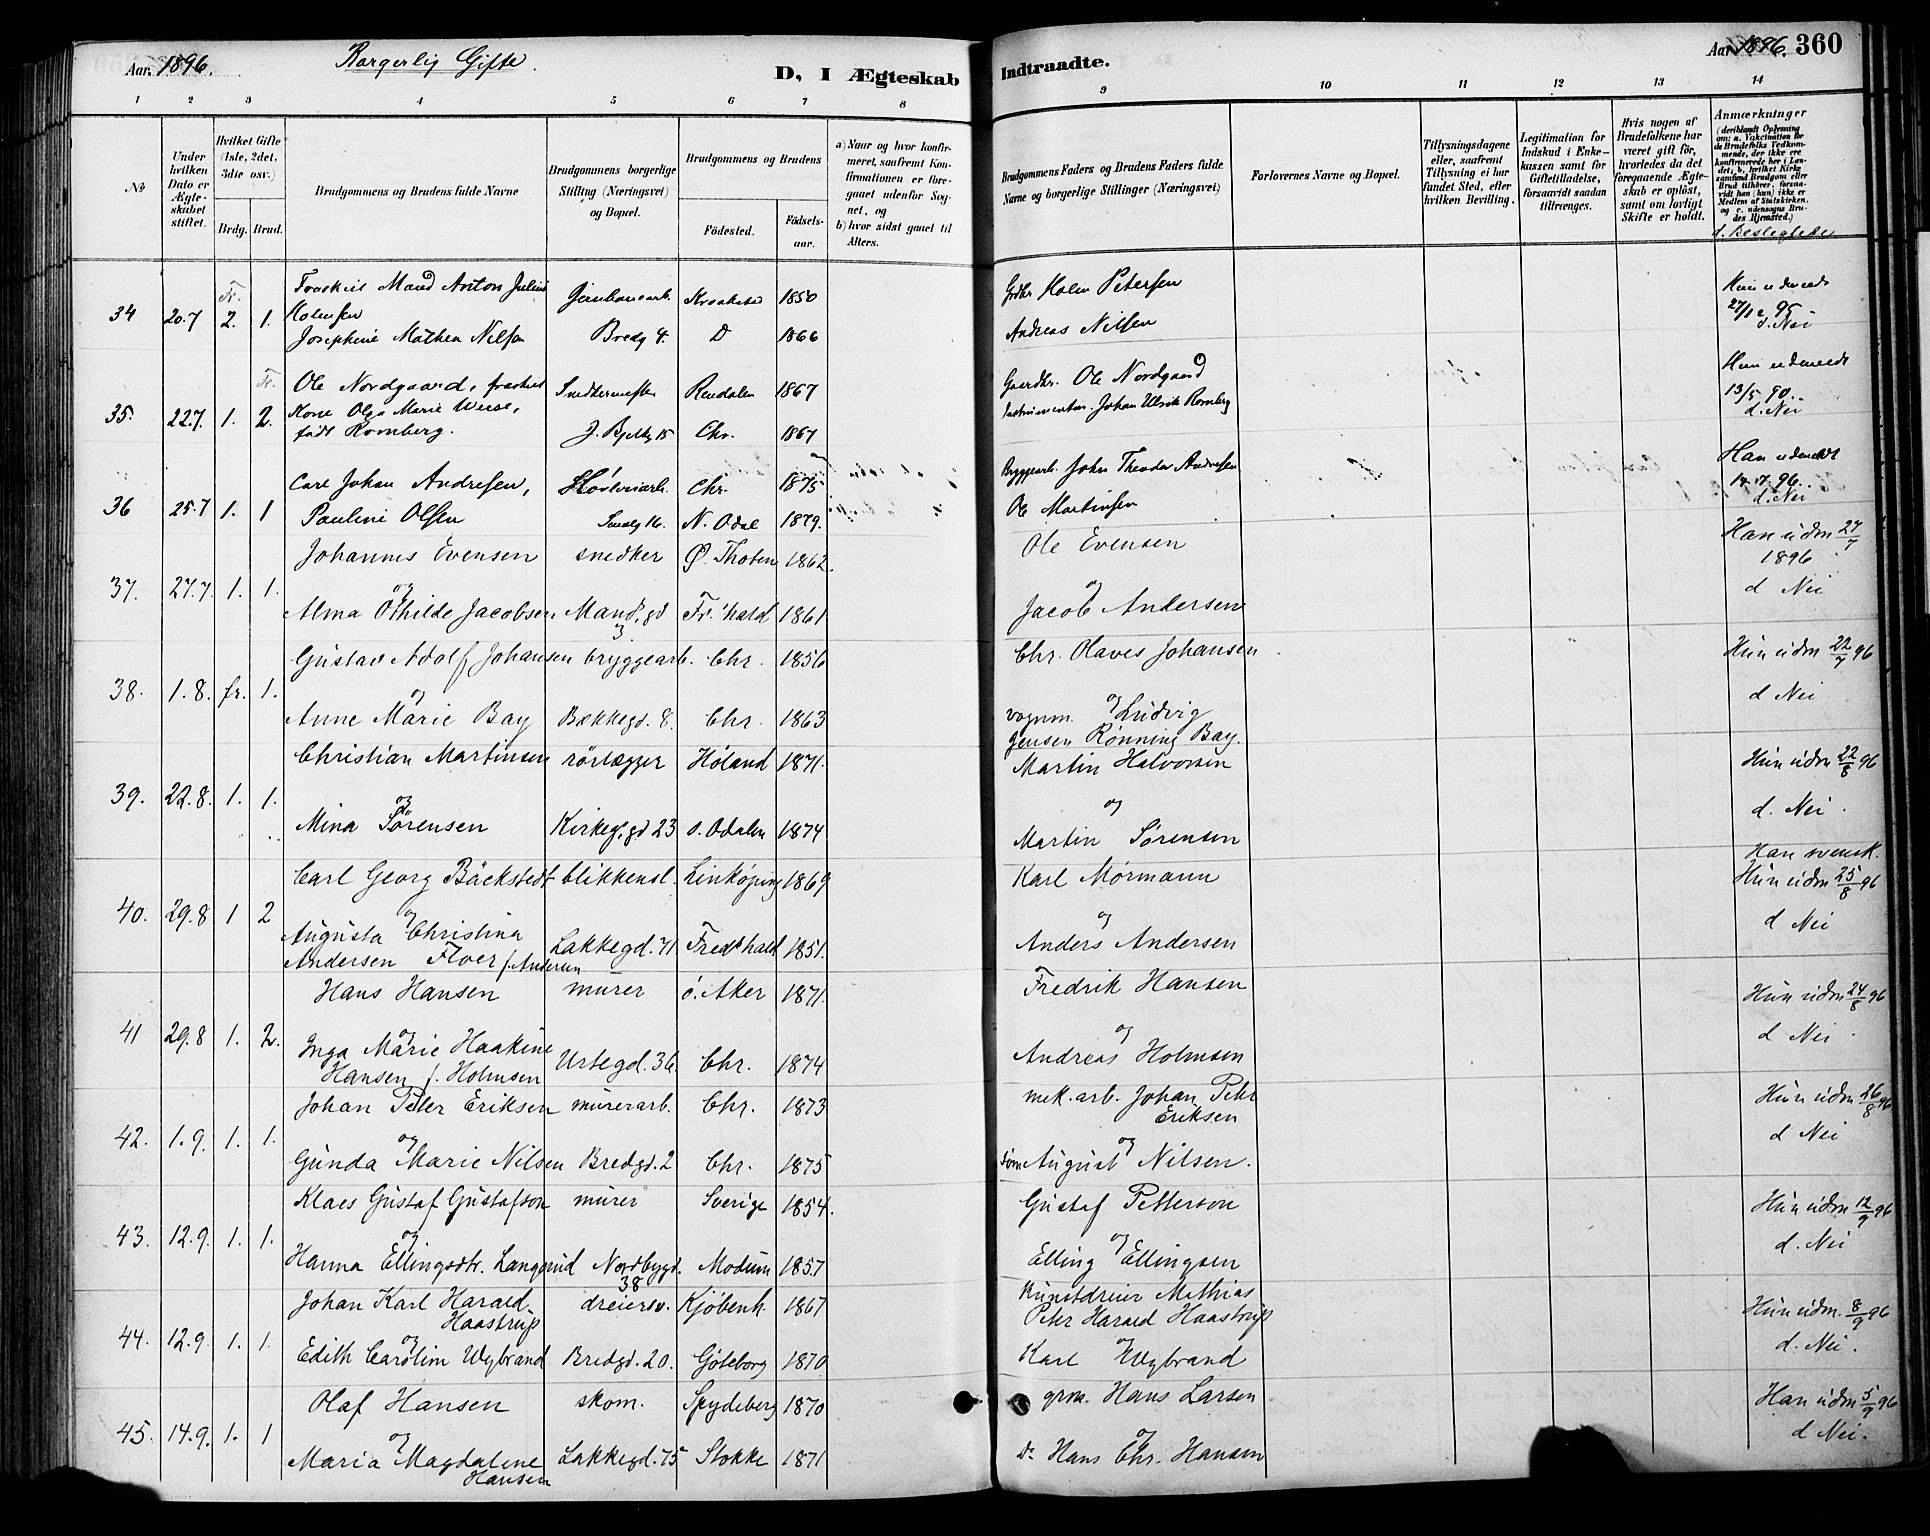 Aar. 1896.
Borgerlig Gifte.
D, I Ægteskab
Indtraadte.
Aar 1896. 360
1 2 3 4 5 6 7 8 9 10 11 12 13 14
No
Under hvilken Dato er Ægteskabet stiftet.
Hvilket Gifte (1ste, 2det, 3die osv.)
Brdg. Brud.
Brudgommens og Brudens fulde Navne
Brudgommens borgerlige Stilling (Næringsvei) og Bopæl.
Brudgommens og Brudens
Födested.
Födselsaar.
a) Naar og hvor konfirmeret, saafremt Konfirmationen er foregaaet udenfor Sognet, og
b) hvor sidst gaaet til Alters.
Brudgommens Faders og Brudens Faders fulde Navne og borgerlige Stillinger (Næringsvei)
Forlovernes Navne og Bopæl.
Tillysningsdagene eller, saafremt Tillysning ei har fundet Sted, efter hvilken Bevilling.
Legitimation for Indskud i Enkekassen samt for Giftetilladelse, forsaavidt saadan tiltrænges.
Hvis nogen af Brudefolkene har været gift før, hvorledes da det foregaaende Ægteskab er oplöst, samt om lovligt Skifte er holdt.
Anmærkninger
(deriblandt Oplysning om: a. Vakcination for de Brudefolks Vedkommende, der ikke ere konfirmerede her i Landet; b. hvilket Kirkesamfund Brudgom eller Brud tilhörer, forsaavidt han (hun) ikke er Medlem af Statskirken, og c. udensogns Brudes Hjemsted.)
d. Beslegtede
34 20.7 Fr. 2. 1. Fraskilt Mand Anton Julius Holmsen Jernbanearb. Kraakstad 1850 Grdbr. Holm Petersen Hun udmeldt 27/12 95
Josephine Mathea Nilsen Bredg 4. D 1866 Andreas Nilsen d. Nei
35. 22.7. 1. Fr. 2. Ole Nordgaard, fraskilt Snedkermester Rendalen 1867 Gaardbr. Ole Nordgaard Hun udmeldt 13/5 90.
Kone Olga Marie Weise, født Romberg. J. Bjelkg 15 Chr. 1867 Instrumentm. Johan Ulrik Romberg d. Nei
36 25.7 1. 1 Carl Johan Andresen, Høvleriarb. Chr. 1875 Bryggearb. John Theodor Andresen Han udmeldt 17.7.96.
Pauline Olsen Smalg 16. N. Odal 1879. Ole Martinsen d. Nei
37. 27.7. 1. 1. Johannes Evensen snedker Ø. Thoten 1862. Ole Evensen Han udm 27/7 1896
og
Alma Othilde Jacobsen Mands.gd 3 Fr.hald 1861 Jacob Andersen d Nei
38. 1.8. fr. 1. Gustav Adolf Johansen bryggearb. Chr. 1856 Chr. Olaves Johansen Hun udm 22/7 96
og
Anne Marie Bay Bækkegd. 8. Chr. 1863 vognm. Ludvig Jensen Rønning Bay. d Nei
39. 22.8. 1. 1. Christian Martinsen rørlægger Høland 1871. Martin Halvorsen Hun udm 22/8 96
og
Mina Sørensen Kirkeg.gd 23 s. Odalen 1874 Martin Sørensen d. Nei.
40. 29.8 1 2 Carl Georg Bäckstedt blikkensl. Linköping 1869 Karl Mørmann Han svensk. Hun udm 25/8 96
og
Augusta Christina Andersen Floer f. Andersen Lakkegd. 71 Fredshald 1851. Anders Andersen d Nei
41 29.8 1. 2. Hans Hansen murer ö. Aker 1871. Fredrik Hansen Hun udm 24/8 96
og
Inga Marie Haakine Hansen f. Holmsen Urtegd. 36. Chr. 1874 Andreas Holmsen d Nei.
42. 1.9. 1. 1. Johan Peter Eriksen murerarb. Chr. 1873 mek. arb. Johan Peter Eriksen Hun udm 26/8 96
og
Gunda Marie Nilsen Bredgd. 2 Chr. 1875 August Nilsen. d Nei
43. 12.9. 1. 1. Klaes Gustaf Gustafson murer Sverige 1854. Gustaf Petterson Hun udm 12/9 96
og
Hanna Ellingsdtr. Langerud Nordbygd. 38 Modum 1857 Elling Ellingsen d. Nei
44. 12.9. 1. 1. Johan Karl Harald Haastrup dreiersv. Kjøbenh. 1867 Kunstdreier Mathias Peter Harald Haastrup Hun udm. 8/9 96
og
Edith Carolim Wybrand Bredgd. 20. Göteborg 1870 Karl Wybrand d. Nei.
45. 14.9. 1. 1 Olaf Hansen skom. Spydeberg 1870 grm. Hans Larsen Han udm 5/9 96
og
Maria Magdalene Hansen Lakkegd. 75 Stokke 1871 D. Hans Chr. Hansen d Nei.